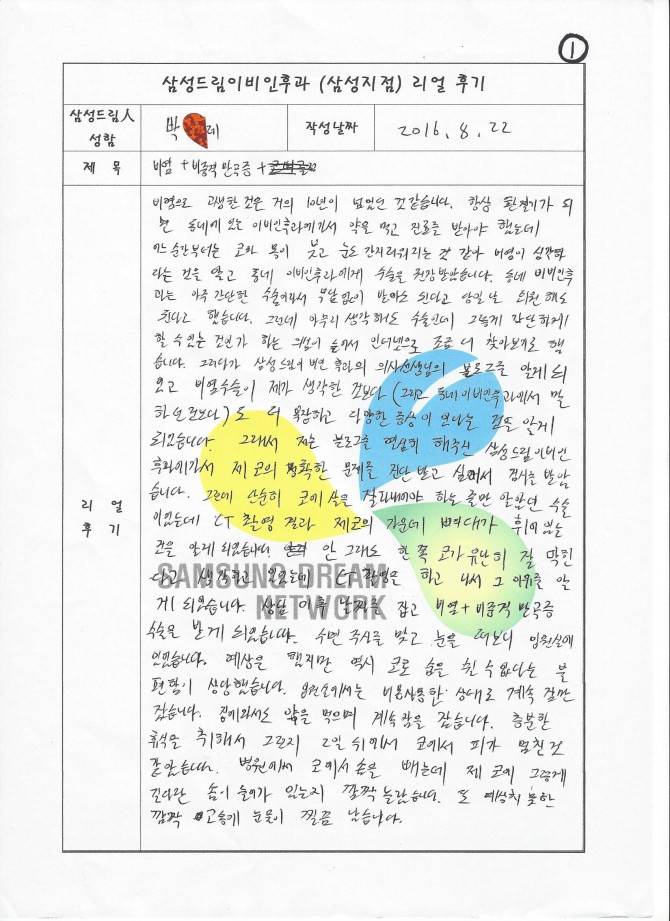 1
삼성드림이비인후과 (삼성지점) 리얼 후기
삼성드림人
성함
박
제
작성날짜
2016. 8. 22
제 목
비염 + 비중격만곡증 +
리 얼
후 기
비염으로 고생한 것은 거의 10년이 넘었던 것같습니다. 항상 환절기가 되
면 동네에 있는 이비인후과에가서 약을 먹고 진료를 받아야 했는데
어느 순간부터는 코와 목이 붓고 눈도 간지러워지는 것 같아 비염이 심각하
다는 것을 알고 동네 이비인후과에게 수술을 권장받았습니다. 동네 이비인후
과는 아주 간단한 수술이라서 부담없이 받아도 된다고 당일날 퇴원해도
된다고 했습니다. 그런데 아무리 생각해도 수술인데 그렇게 간단하게
할 수 있는 것인가 하는 의심이 들어서 인터넷으로 조금 더 찾아보기로 했
습니다. 그러다가 삼성드림이비인후과의 의사선생님의 블로그를 알게 되
었고 비염수술이 제가 생각한 것보다 (그리고 동네이비인후과에서 말
하던것보다)도 더 복잡하고 다양한 증상이 있다는 것을 알게
되었습니다. 그래서 저는 블로그를 열심히 해주신 삼성드림이비인
후과에가서 제 코의 정확한 문제를 진단받고 싶어서 검사를 받았
습니다. 그런데 단순히 코에 살을 잘라내야 하는 줄만 알았던 수술
이었는데 CT 촬영 결과 제코의 가운데 뼈대가 휘어 있는
것을 알게 되었습니다. 안 그래도 한 쪽 코가 유난히 잘 막힌
다고 생각하고 있었는데 CT 촬영을 하고 나서 그 이유를 알
게 되었습니다. 상담 이후 날짜를 잡고 비염+비중격만곡증
수술을 받게 되었습니다. 수면 주사를 맞고 눈을 떠보니 입원실에
있었습니다. 예상은 했지만 역시 코로 숨을 쉴 수 없다는 불
편함이 상당했습니다. 입원실에서는 비몽사몽한 상태로 계속 잠만
잤습니다. 집에와서도 약을 먹으며 계속 잠을 잤습니다. 충분한
휴식을 취해서 그런지 2일 뒤에서 코에서 피가 멈춘것
같았습니다. 병원에서 코에서 솜을 빼는데 제 코에 그렇게
커다란 솜이 들어가 있는지 깜짝 놀랐습니다. 또 예상치 못한
깜짝 고통에 눈물이 찔끔 났습니다.
SAMSUNG DREAM
NETWORK